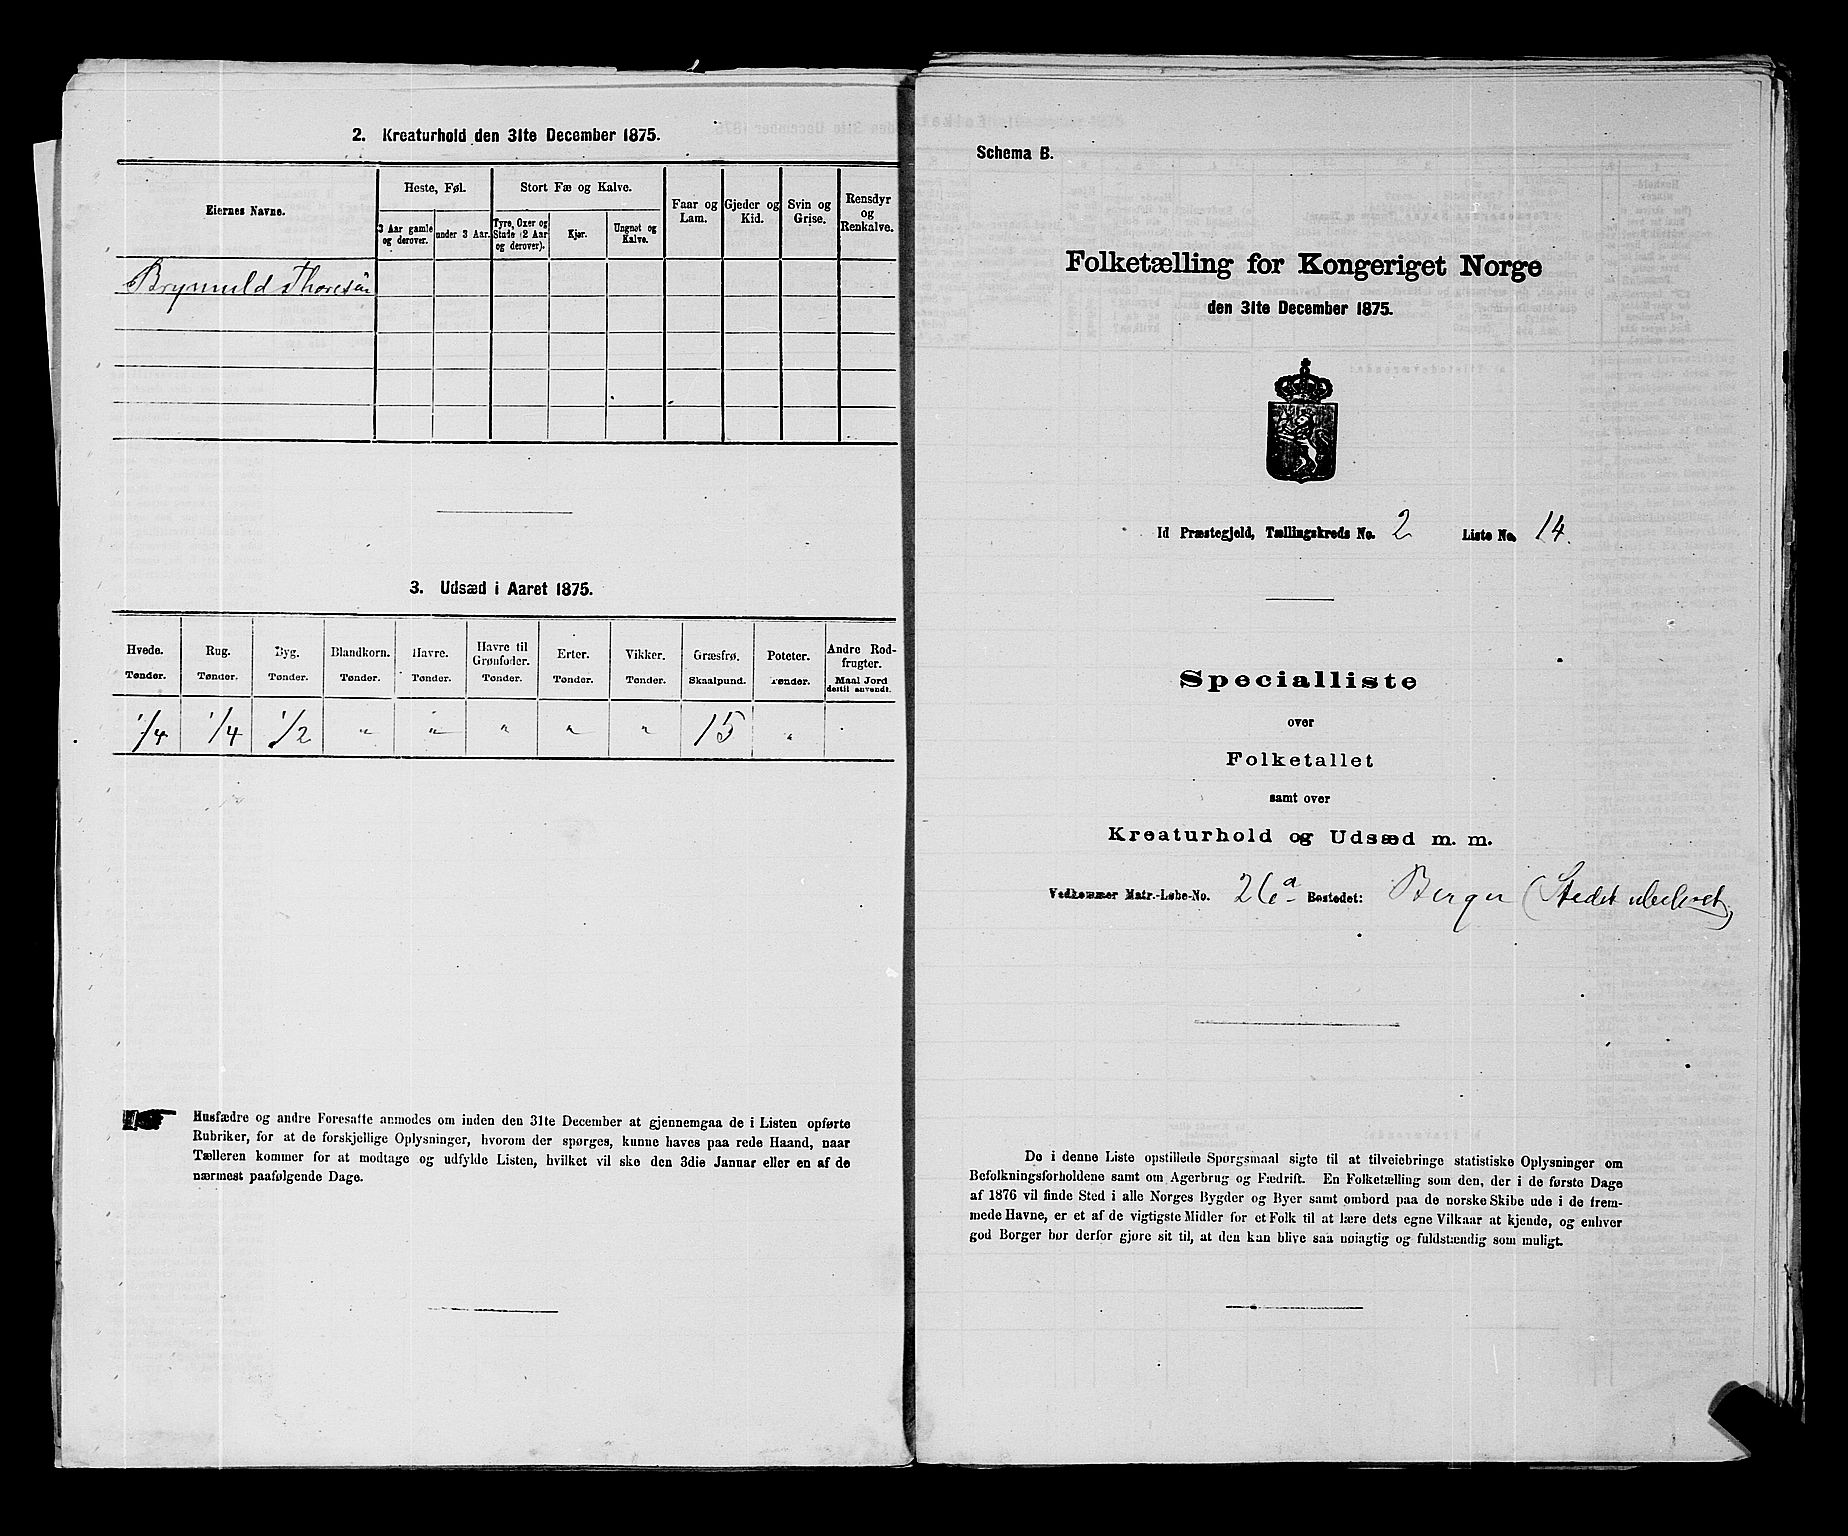 2. Kreaturhold den 31te December 1875.
Eiernes Navne.
Heste, Føl.
Stort Fæ og Kalve.
Faar og Lam.
Gjeder og Kid.
Svin og Grise.
Rensdyr og Renkalve.
3 Aar gamle og derover.
under 3 Aar.
Tyre, Oxer og Stude (2 Aar og derover).
Kjør.
Ungnøt og Kalve.
Brynuld Thoresen
3. Udsæd i Aaret 1875.
Hvede. Rug. Byg. Blandkorn. Havre. Havre til Grønfoder. Erter. Vikker. Græsfrø. Poteter. Andre Rodfrugter.
Tønder. Tønder. Tønder. Tønder. Tønder. Tønder. Tønder. Tønder. Skaalpund. Tønder. Maal Jord dertil anvendt.
1/4 1/4 1/2 " " " " " 15 "
Husfædre og andre Foresatte anmodes om inden den 31te December at gjennemgaa de i Listen opførte
Rubriker, for at de forskjellige Oplysninger, hvorom der spørges, kunne haves paa rede Haand, naar
Tælleren kommer for at modtage og udfylde Listen, hvilket vil ske den 3die Januar eller en af de
nærmest paafølgende Dage.
Schema B.
Folketælling for Kongeriget Norge
den 31te December 1875.
Id Præstegjeld, Tællingskreds No. 2 Liste No. 14.
Specialliste
over
Folketallet
samt over
Kreaturhold og Udsæd m. m.
Vedkommer Matr.-Løbe-No. 26a Bostedet: Berger (Stedet ubeboet)
De i denne Liste opstillede Spørgsmaal sigte til at tilveiebringe statistiske Oplysninger om
Befolkningsforholdene samt om Agerbrug og Fædrift. En Folketælling som den, der i de første Dage
af 1876 vil finde Sted i alle Norges Bygder og Byer samt ombord paa de norske Skibe ude i de frem-
mede Havne, er et af de vigtigste Midler for et Folk til at lære dets egne Vilkaar at kjende, og enhver
god Borger bør derfor gjøre sit til, at den kan blive saa nøiagtig og fuldstændig som muligt.